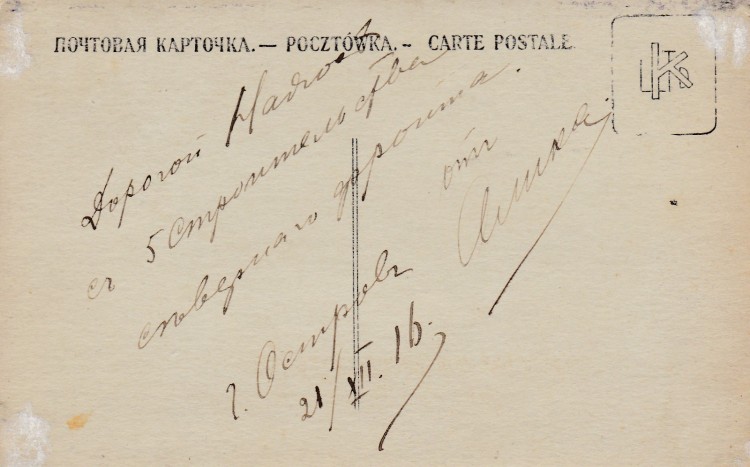 ПОЧТОВАЯ КАРТОЧКА.— POCZTÓWKA.- CARTE POSTALE.
Дорогой
съ 5 Строительства
сѣвернаго фронта.
отъ
г. Островъ
21/XII. 16.